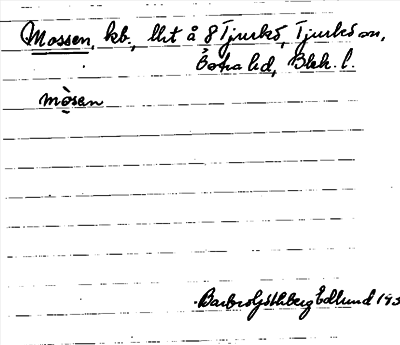 Mossen, kb., lht å 8 Tjurkö, Tjurkö sn,
Östra hd, Blek. l.
mòsen
Barbro Söhrberg Edlund 193